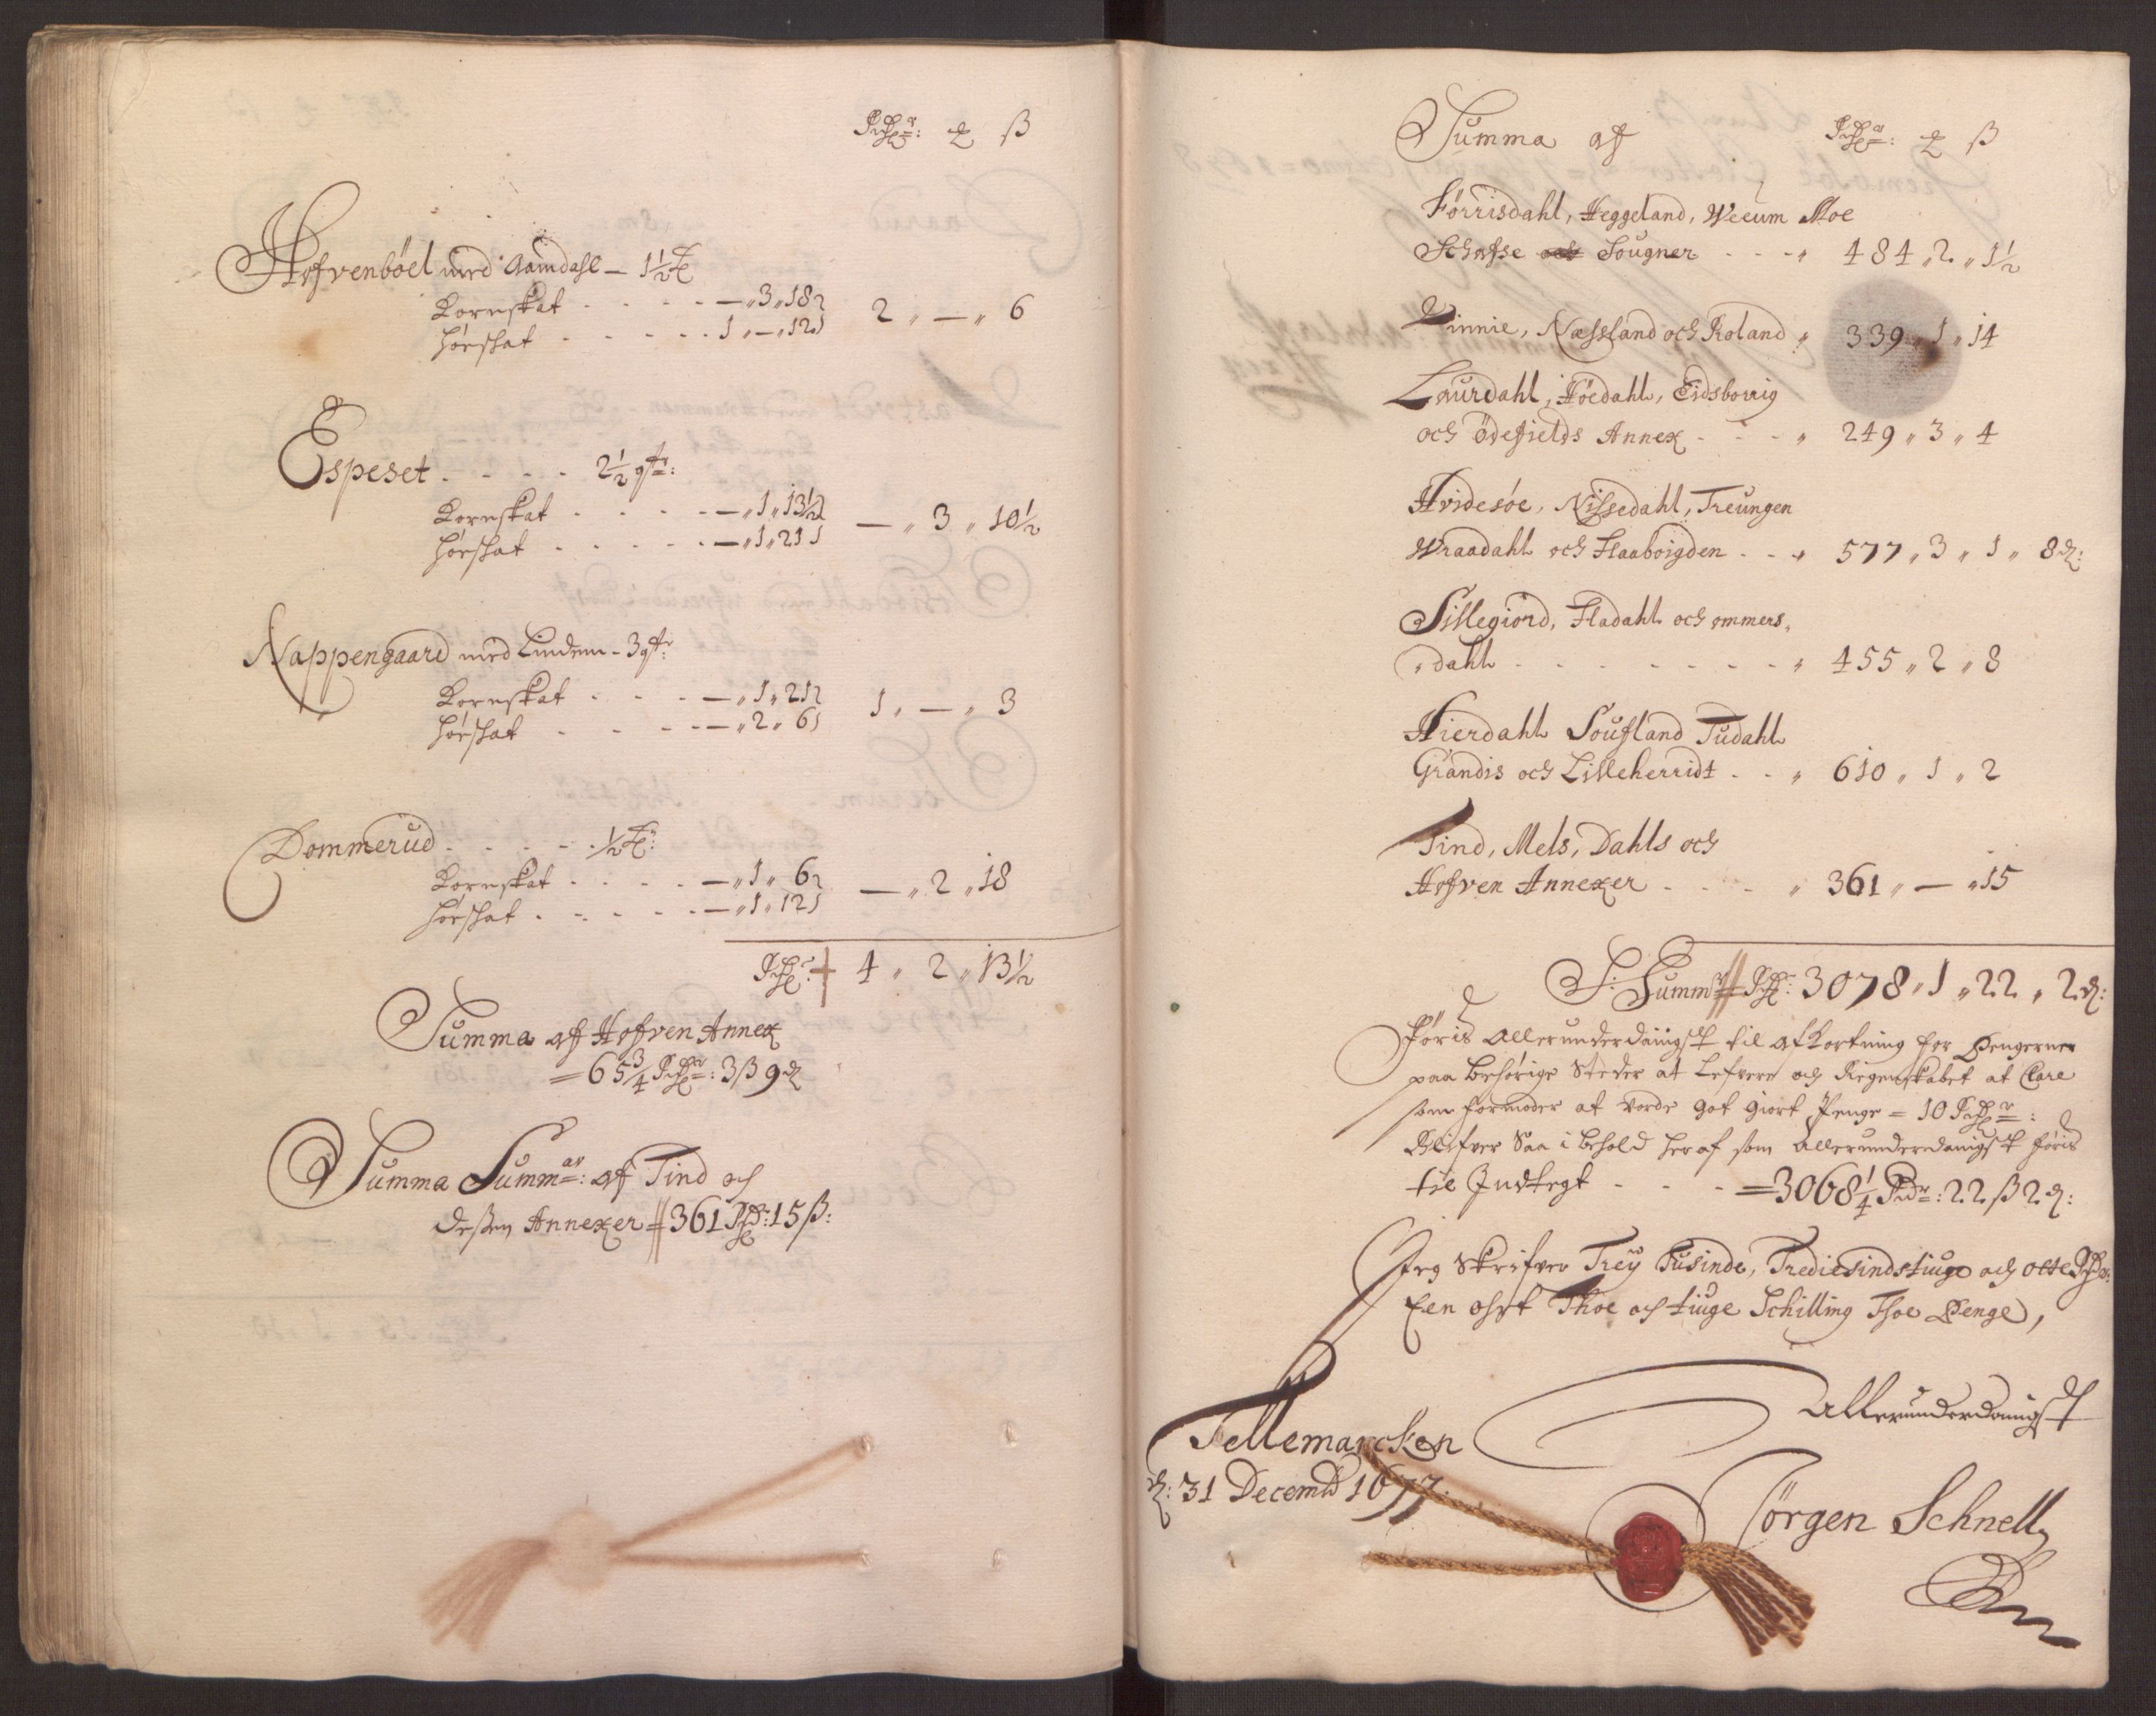 Rixdr: ₰ ß
Hofvenböel med Aamdahl — 1½ T
Kornskat . . . . — „ 3 „ 18
2 „ — „ 6
Hörskat . . . . . 1 „ — „ 12
Espeset . . . . 2½ qtr:
Kornskat . . . . — „ 1 „ 13½
— „ 3 „ 10½
Hörskat . . . . . — „ 1 „ 21
Nappengaard med Lindem - 3 qtr
Kornskat . . . — „ 1 „ 21
1 „ — „ 3
Hörskat . . . . — „ 2 „ 6
Dommerud . . . . . ½ T:
Kornskat . . . . — „ 1 „ 6
— „ 2 „ 18
Hörskat . . . . . — „ 1 „ 12
Rdr: 4 „ 2 „ 13½
Summa aff Hofven Annex
= 65¾ Rixdr: 3 ß 9 ₰
Summa Summar: aff Tind och
dessen Annexer = 361 Rdr: 15 ß:
Summa aff Rixdr: ₰ ß
Förrisdahl, Heggeland, Weeum Moe
Schafse Sougner . . . „ 484 „ 2 „ 1½
Vinnie, Næssland och Roland „ 339 „ 1 „ 14
Laurdahl, Höedahl, Eidsborrig
och Ödefields Annex . . . „ 249 „ 3 „ 4
Hvidesöe, Nissedahl, Treungen
Wraadahl och Flaaboigden . . „ 577 „ 3 „ 1 „ 8 ₰:
Sillegiord, Fladahl och ommers,
„ dahl . . . . . . . . „ 455 „ 2 „ 8
Hierdahl Soufland Tudahl
Grandis och Lilleherridt . . „ 610 „ 1 „ 2
Tind, Mels, Dahls och
Hofven Annexer . . . . „ 361 „ — „ 15
S: Summr Rdr: 3078 „ 1 „ 22 „ 2 ₰:
Föris allerunderdanigst til afkortning for Pengerne
paa behörige Steder at Lefvere och Regenskabet at Clare
som formoder at vorde got giort Penge = 10 Rixdr:
Blifver Saa i behold heraf som allerunderdanigst föris
til Indtegt . . . = 3068¼ Rdr: 22 ß 2 ₰:
Jeg Skrifver Trey Tusinde, Trediesindstiuge och otte Rdr:
Een ohrt Thoe och tiuge Schilling Thoe Penge,
Allerunderdanigst
Tellemarcken
d: 31 Decemb 1677.
Jörgen Schnell